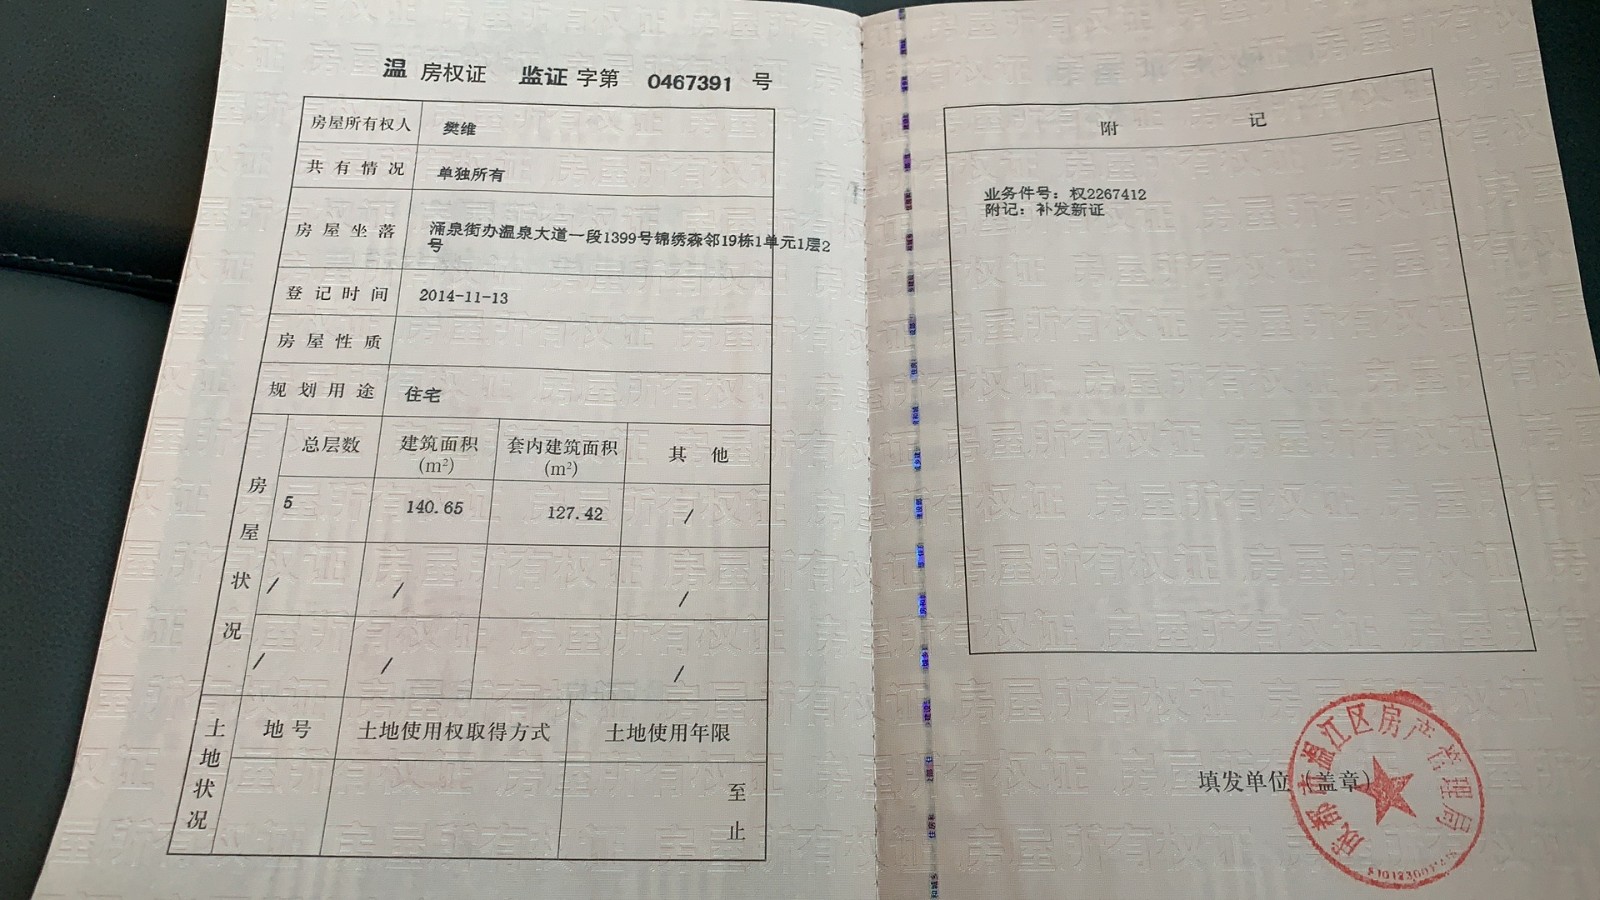 温 房权证 监证 字第 0467391 号
房屋所有权人 樊维
共有情况 单独所有
房屋坐落 涌泉街办温泉大道一段1399号锦绣森邻19栋1单元1层2
号
登记时间 2014-11-13
房屋性质
规划用途 住宅
房屋状况
总层数 建筑面积(m²) 套内建筑面积(m²) 其他
5 140.65 127.42 /
/ / /
/ / /
土地状况
地号 土地使用权取得方式 土地使用年限
至
止
附记
业务件号：权2267412
附记：补发新证
填发单位（盖章）
成都市温江区房产管理局